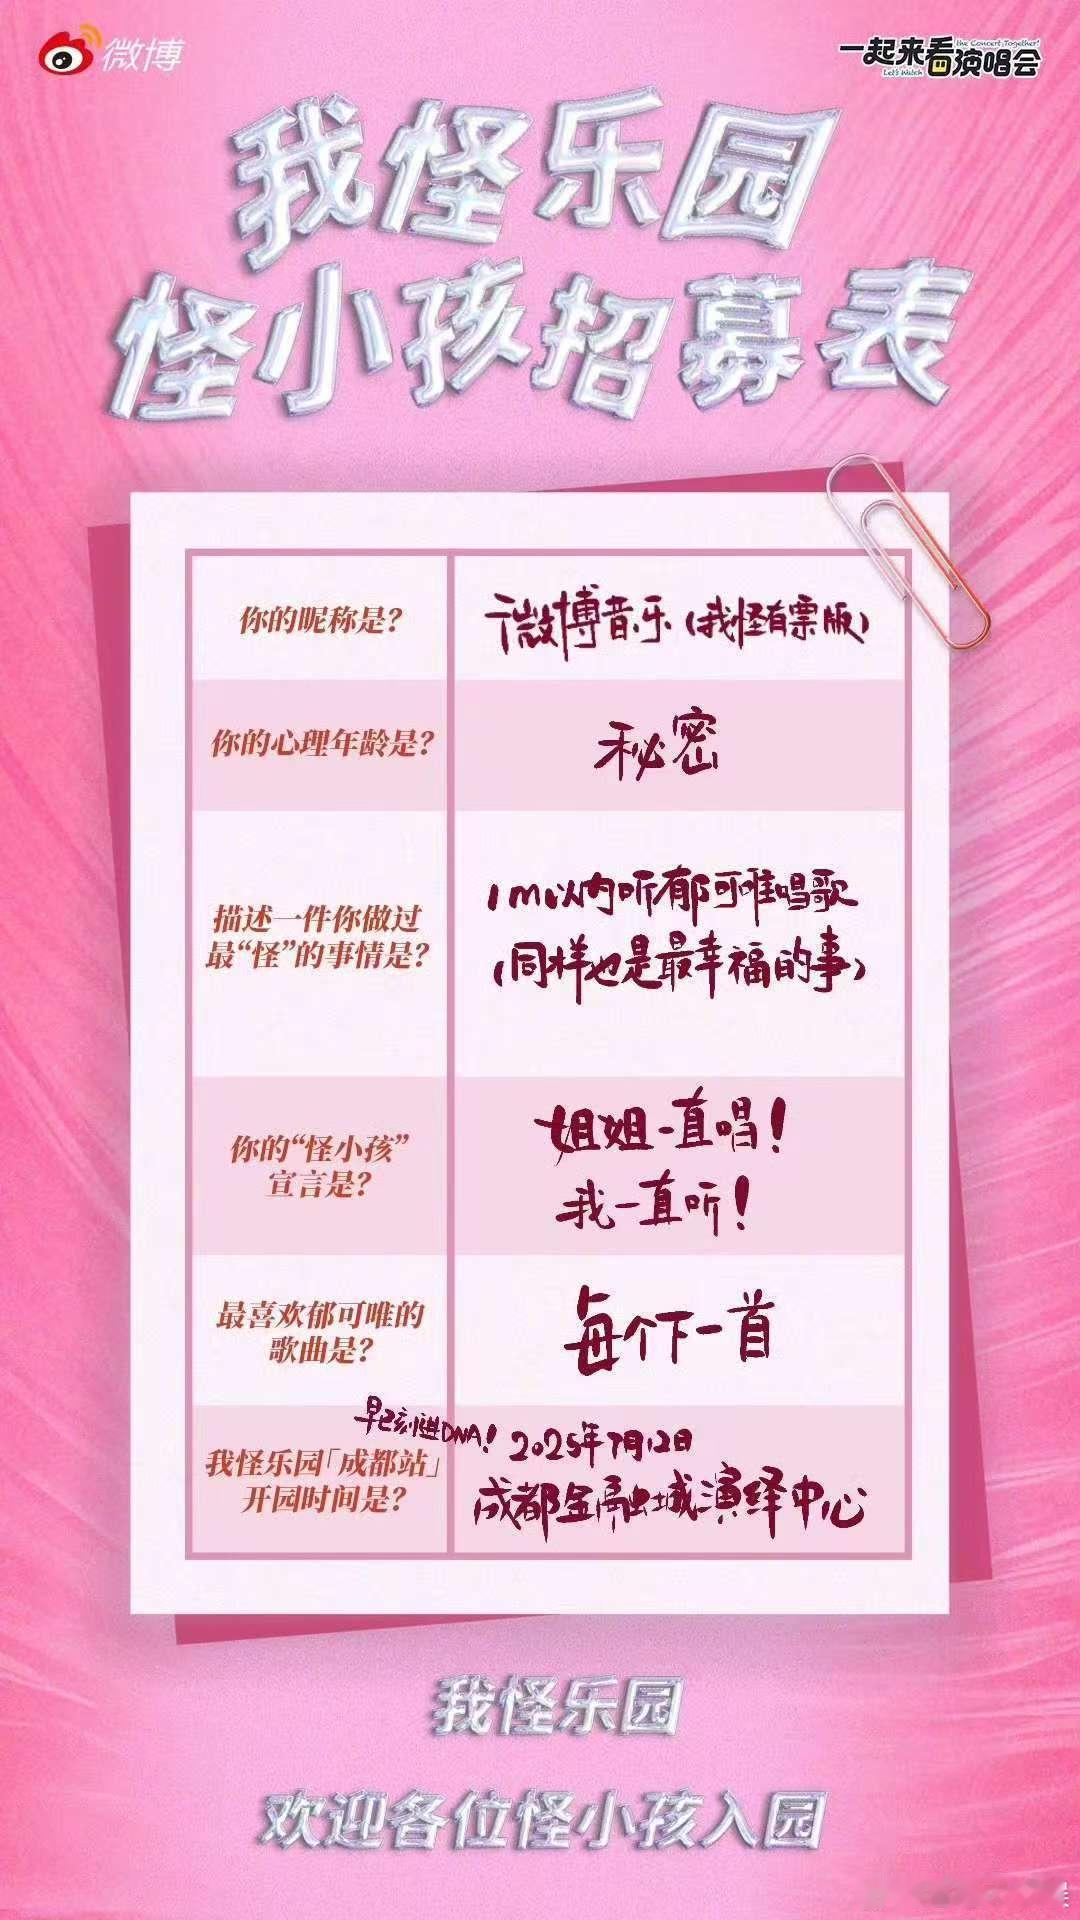 微博
一起来看演唱会
the Concert Together!
Let's Watch
我怪乐园
怪小孩招募表
你的昵称是?
微博音乐(我怪有票版)
你的心理年龄是?
秘密
描述一件你做过
最“怪”的事情是?
1m以内听郁可唯唱歌
(同样也是最幸福的事)
你的“怪小孩”
宣言是?
姐姐一直唱!
我一直听!
最喜欢郁可唯的
歌曲是?
每个下一首
我怪乐园「成都站」
开园时间是?
早已刻进DNA!
2025年7月12日
成都金融城演绎中心
我怪乐园
欢迎各位怪小孩入园